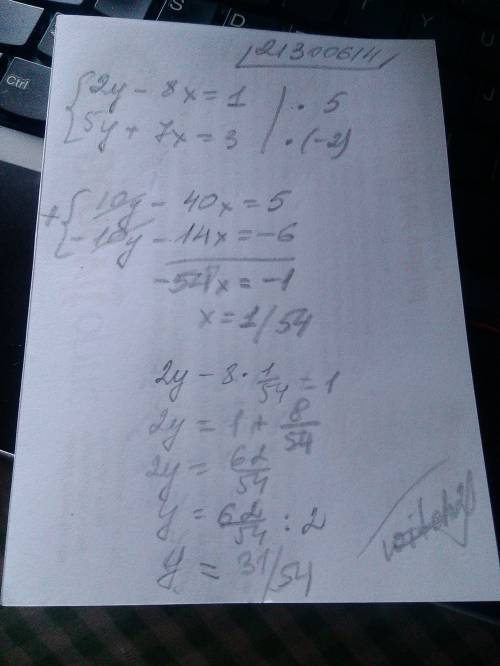 21300614
{2y - 8x = 1 | · 5
{5y + 7x = 3 | · (-2)
+ {10y - 40x = 5
{-10y - 14x = -6
-54x = -1
x = 1/54
2y - 8 · 1/54 = 1
2y = 1 + 8/54
2y = 62/54
y = 62/54 : 2
y = 31/54
Ctrl